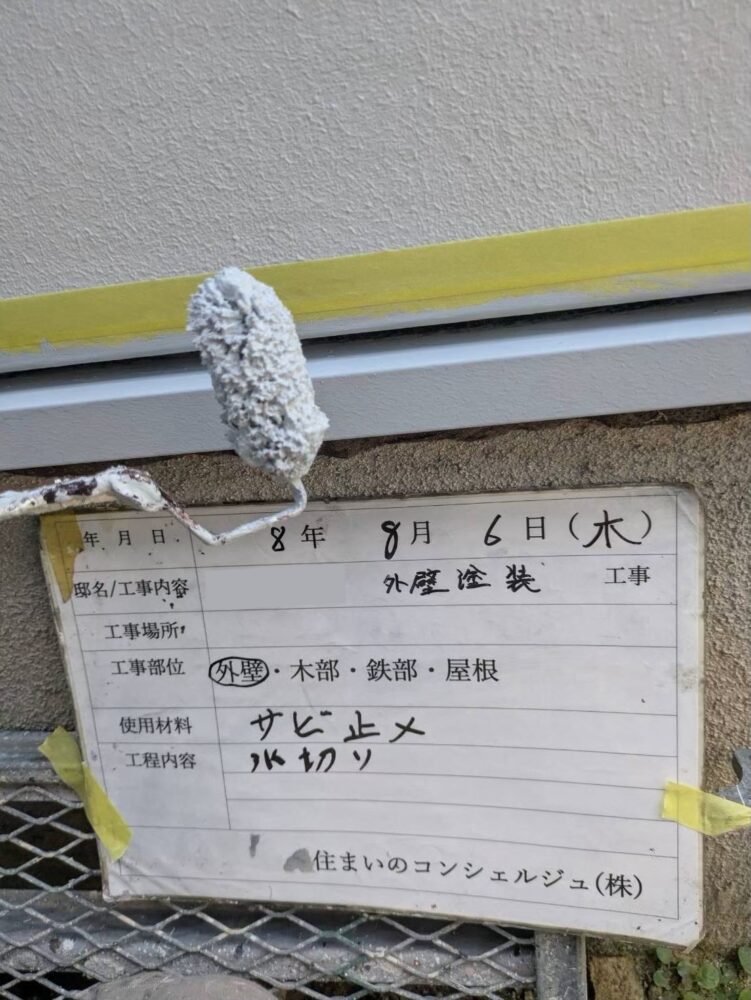 年 月 日 8年 8月 6日(木)
邸名/工事内容 外壁塗装 工事
工事場所
工事部位 外壁・木部・鉄部・屋根
使用材料 サビ止メ
工程内容 水切リ
住まいのコンシェルジュ(株)